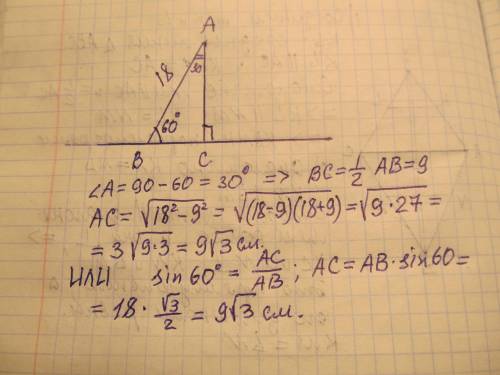 A
18
30
60°
B
C
∠A = 90 - 60 = 30° => BC = 1/2 AB = 9
AC = √(18² - 9²) = √((18-9)(18+9)) = √(9·27) =
= 3√(9·3) = 9√3 см.
ИЛИ sin 60° = AC/AB ; AC = AB · sin 60 =
= 18 · √3/2 = 9√3 см.